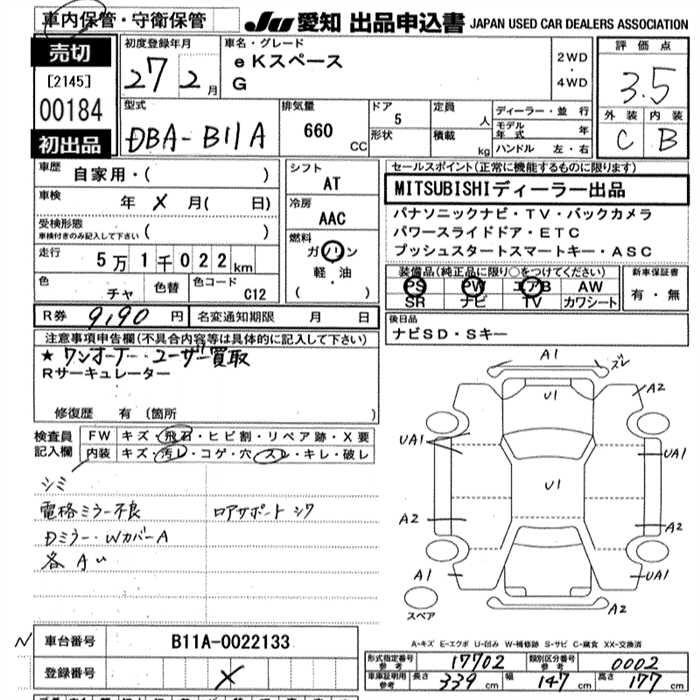 車内保管・守衛保管
JU 愛知 出品申込書 JAPAN USED CAR DEALERS ASSOCIATION
売切
[2145]
00184
初出品
初度登録年月
27 2月
車名・グレード
eKスペース
G
2WD
・
4WD
評価点
3.5
外装 内装
C B
型式
DBA-B11A
排気量
660 CC
ドア 5
形状
定員 人
積載 kg
ディーラー・並行
モデル年式 年
ハンドル 左・右
車歴 自家用・( )
車検 年 × 月( 日)
受検形態
車検付きのみ記入して下さい ( )
走行 5万1千022km
色 チャ 色替 色コード C12
シフト
AT
冷房
AAC
燃料
ガソリン
軽・油
( )
セールスポイント(正常に機能するものに限ります)
MITSUBISHIディーラー出品
パナソニックナビ・TV・バックカメラ
パワースライドドア・ETC
プッシュスタートスマートキー・ASC
装備品(純正品に限り○をつけてください)
PS PW エアB AW
SR ナビ TV カワシート
新車保証書
有・無
R券 9,190 円 名変通知期限 月 日
後日品
ナビSD・Sキー
注意事項申告欄(不具合内容等は具体的に記入して下さい)
★ワンオーナー ユーザー買取
Rサーキュレーター
修復歴 有 (箇所 )
検査員
記入欄
FW キズ・飛石・ヒビ割・リペア跡・X要
内装 キズ・汚レ・コゲ・穴・スレ・キレ・破レ
シミ
電格ミラー不良 ロアサポート シワ
Dミラー・WカバーA
各 A
A1
ズレ
U1
A2
UA1
UA1
U1
A2
A2
A1
UA1
A2
スペア
A-キズ E-エクボ U-凹み W-補修跡 S-サビ C-腐食 XX-交換済
N
車台番号 B11A-0022133
登録番号 ×
形式指定番号 参考 17702 類別区分番号 参考 0002
車庫証明用 参考 長さ 339cm 幅 147cm 高さ 177cm